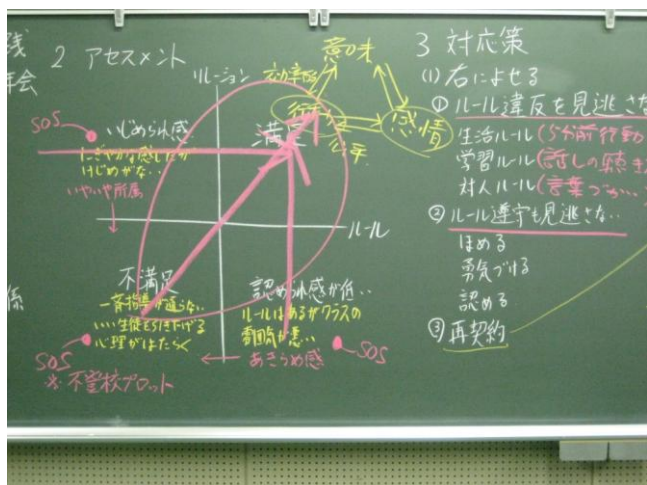 2 アセスメント
リレーション
意味
行動
感情
公平
満足
SOS
いじめられ感
にぎやかな感じだが
けじめがな..
いやいや所属
ルール
不満足
一斉指導が通らない
いい生徒を引き下げる
心理がはたらく
SOS
※不登校プロット
認められ感が低..
ルールはあるがクラスの
雰囲気が悪い..
あきらめ感
SOS
3 対応策
(1) 右によせる
① ルール違反を見逃さな
生活ルール(5分前行動
学習ルール(話しの聴き
対人ルール(言葉づか...
② ルール遵守も見逃さな..
ほめる
勇気づける
認める
③ 再契約